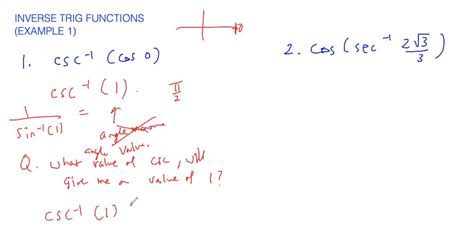 INVERSE TRIG FUNCTIONS
(EXAMPLE 1)
1. csc⁻¹ (cos 0)
csc⁻¹ (1). π/2
1/sin⁻¹(1) = ↑
angle measure
angle value.
Q. what value of csc, will
give me a value of 1?
csc⁻¹ (1)
2. cos (sec⁻¹ 2√3/3)